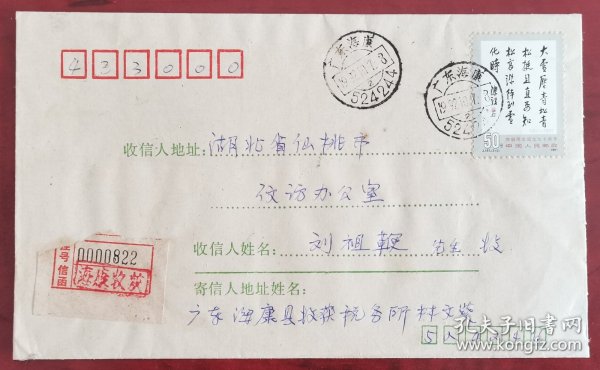 433000
广东海康
1992.11.
524244
广东海康
1992.11.
大雪压青松
青松挺且直
要知松高洁
待到雪化时
50分
中国人民邮政
收信人地址:湖北省仙桃市
信访办公室
收信人姓名: 刘祖 先生 收
挂号信函
0000822
海康收获
寄信人地址姓名:
广东海康县收获税务所林文
孔夫子旧书网
www.kongfz.com